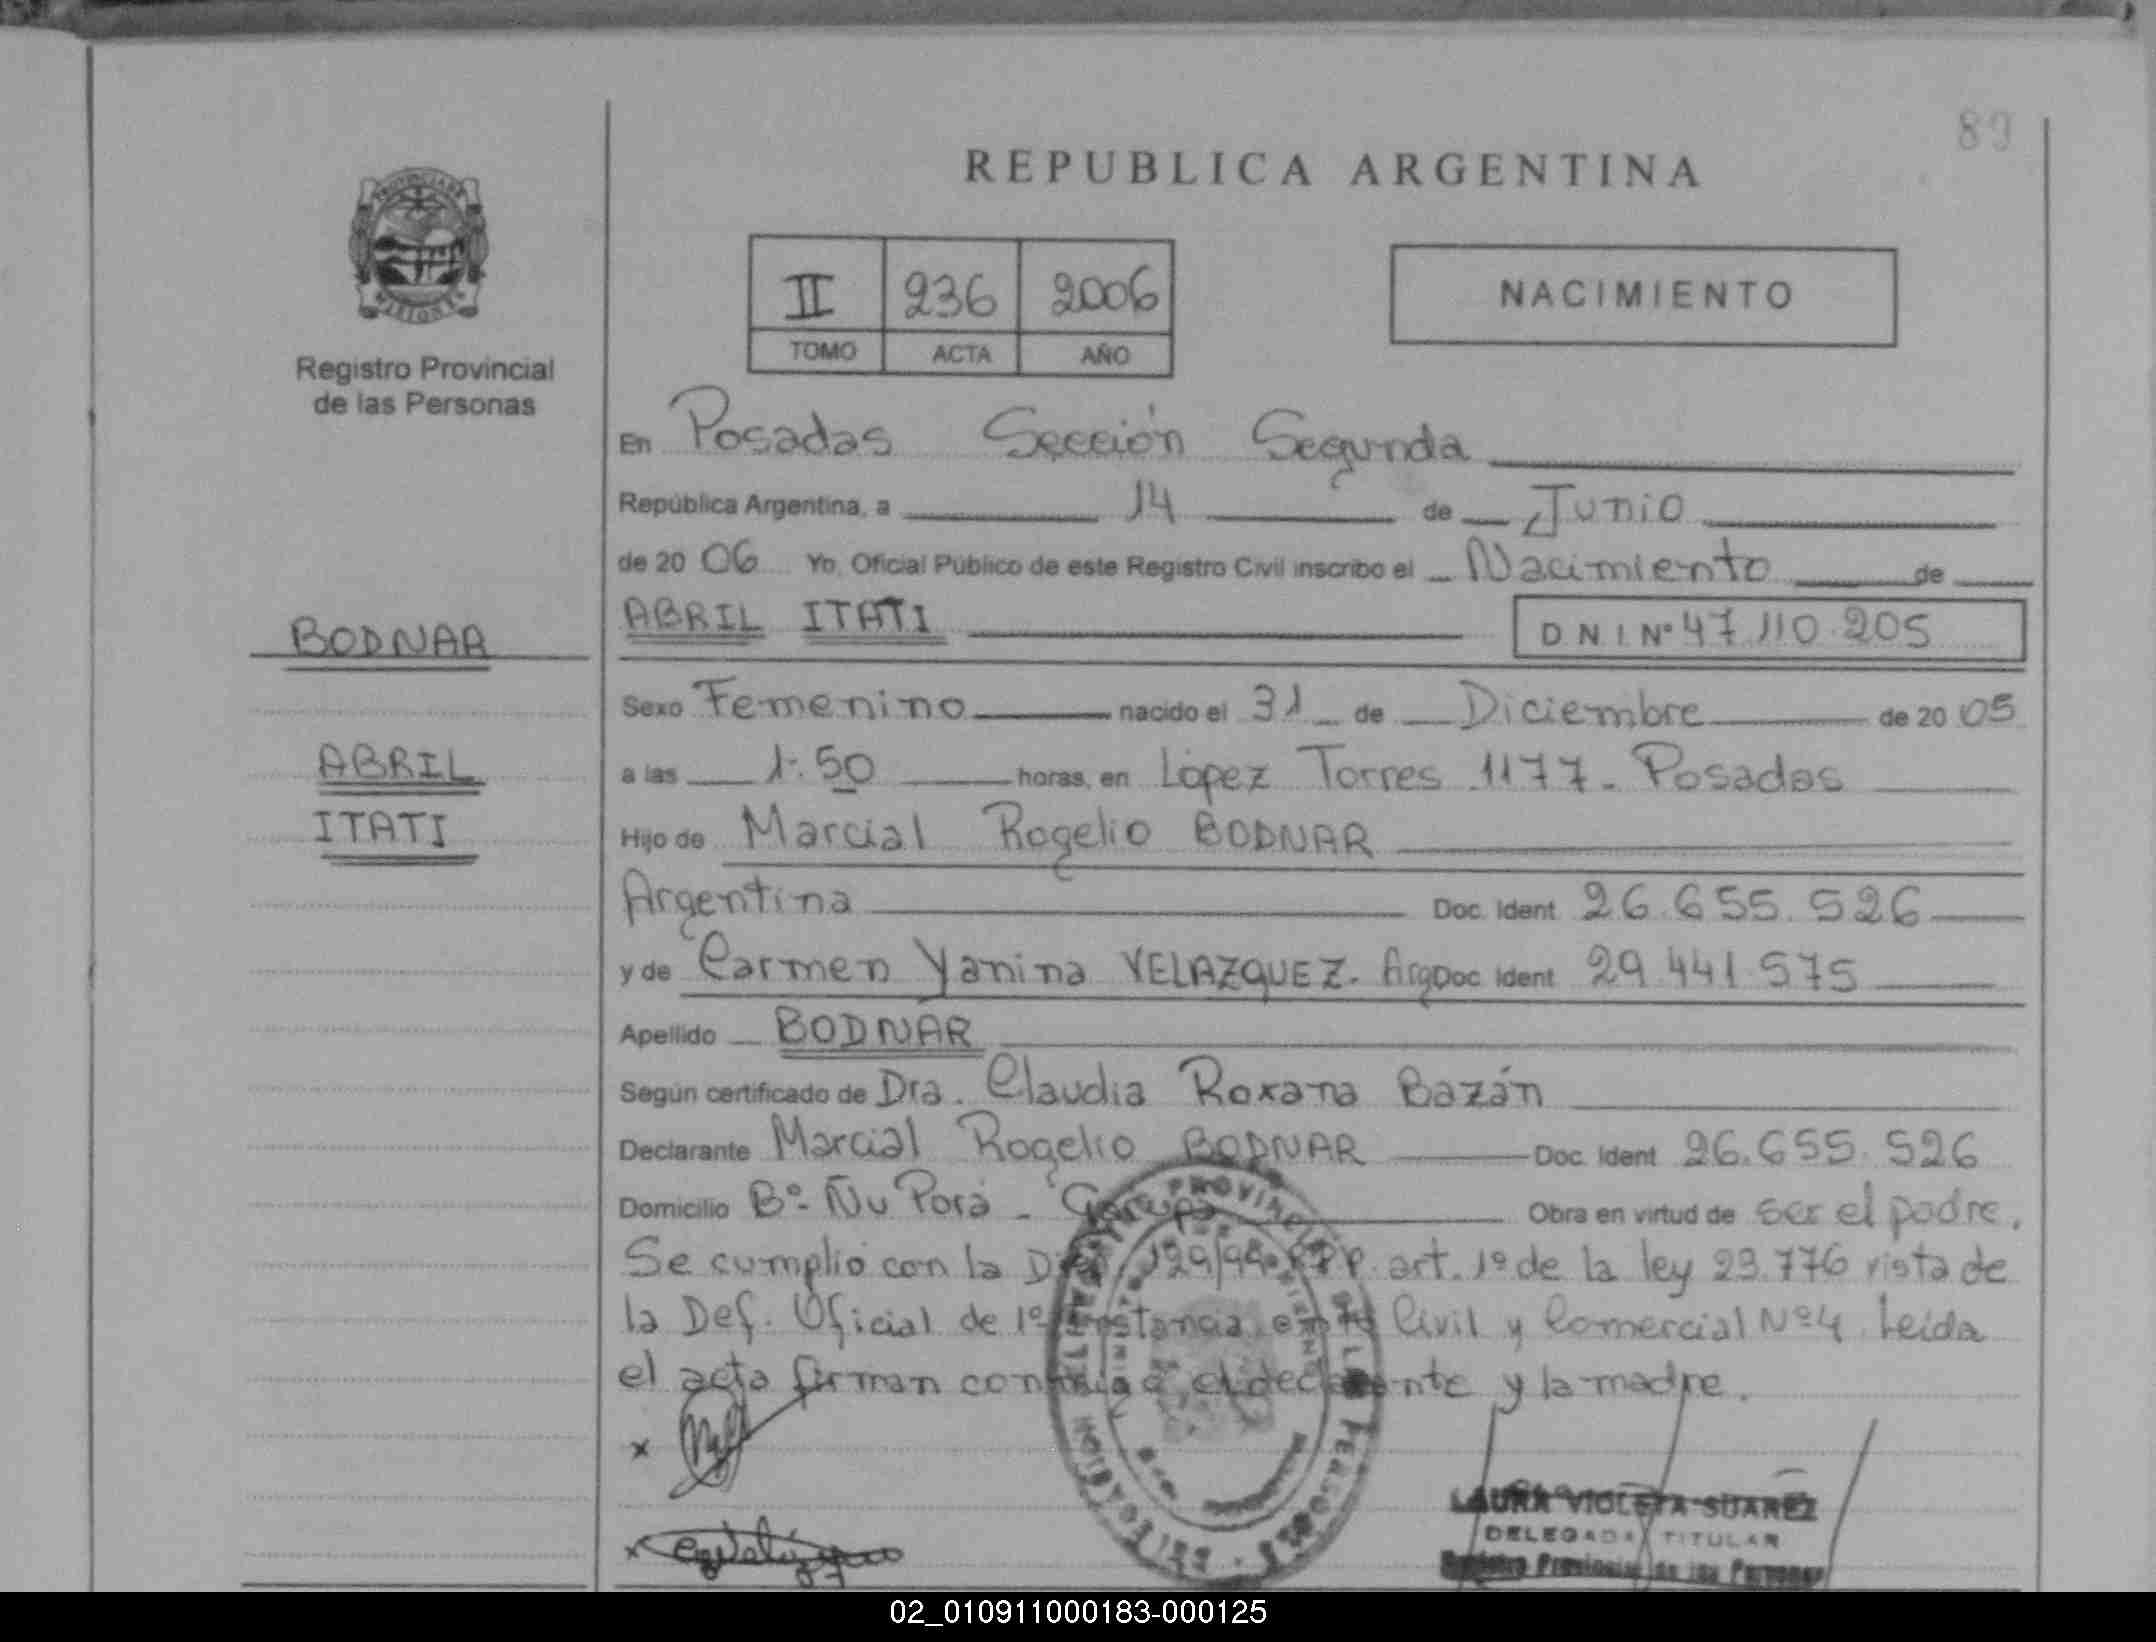 89
REPUBLICA ARGENTINA
PROVINCIA DE
MISIONES
Registro Provincial
de las Personas
II 236 2006
TOMO ACTA AÑO
NACIMIENTO
En Posadas Sección Segunda
República Argentina, a 14 de Junio
de 20 06 Yo, Oficial Público de este Registro Civil inscribo el Nacimiento de
BODNAR
ABRIL ITATI
D N I Nº 47.110.205
Sexo Femenino nacido el 31 de Diciembre de 20 05
ABRIL
a las 1:50 horas, en López Torres 1177 - Posadas
ITATI
Hijo de Marcial Rogelio BODNAR
Argentina Doc. Ident 26.655.526
y de Carmen Yanina VELAZQUEZ. Arg Doc Ident 29.441.575
Apellido BODNAR
Según certificado de Dra. Claudia Roxana Bazán
Declarante Marcial Rogelio BODNAR Doc. Ident 26.655.526
Domicilio Bº Ñu Porá - Garupá Obra en virtud de ser el padre.
Se cumplió con la 129/94 RPP. art. 1º de la ley 23.776 vista de
la Def. Oficial de 1º Instancia en lo Civil y Comercial Nº4. Leida
el acta firman conmigo el declarante y la madre.
x
LAURA VIOLETA SUAREZ
DELEGADA TITULAR
x
Registro Provincial de las Personas
02_010911000183-000125